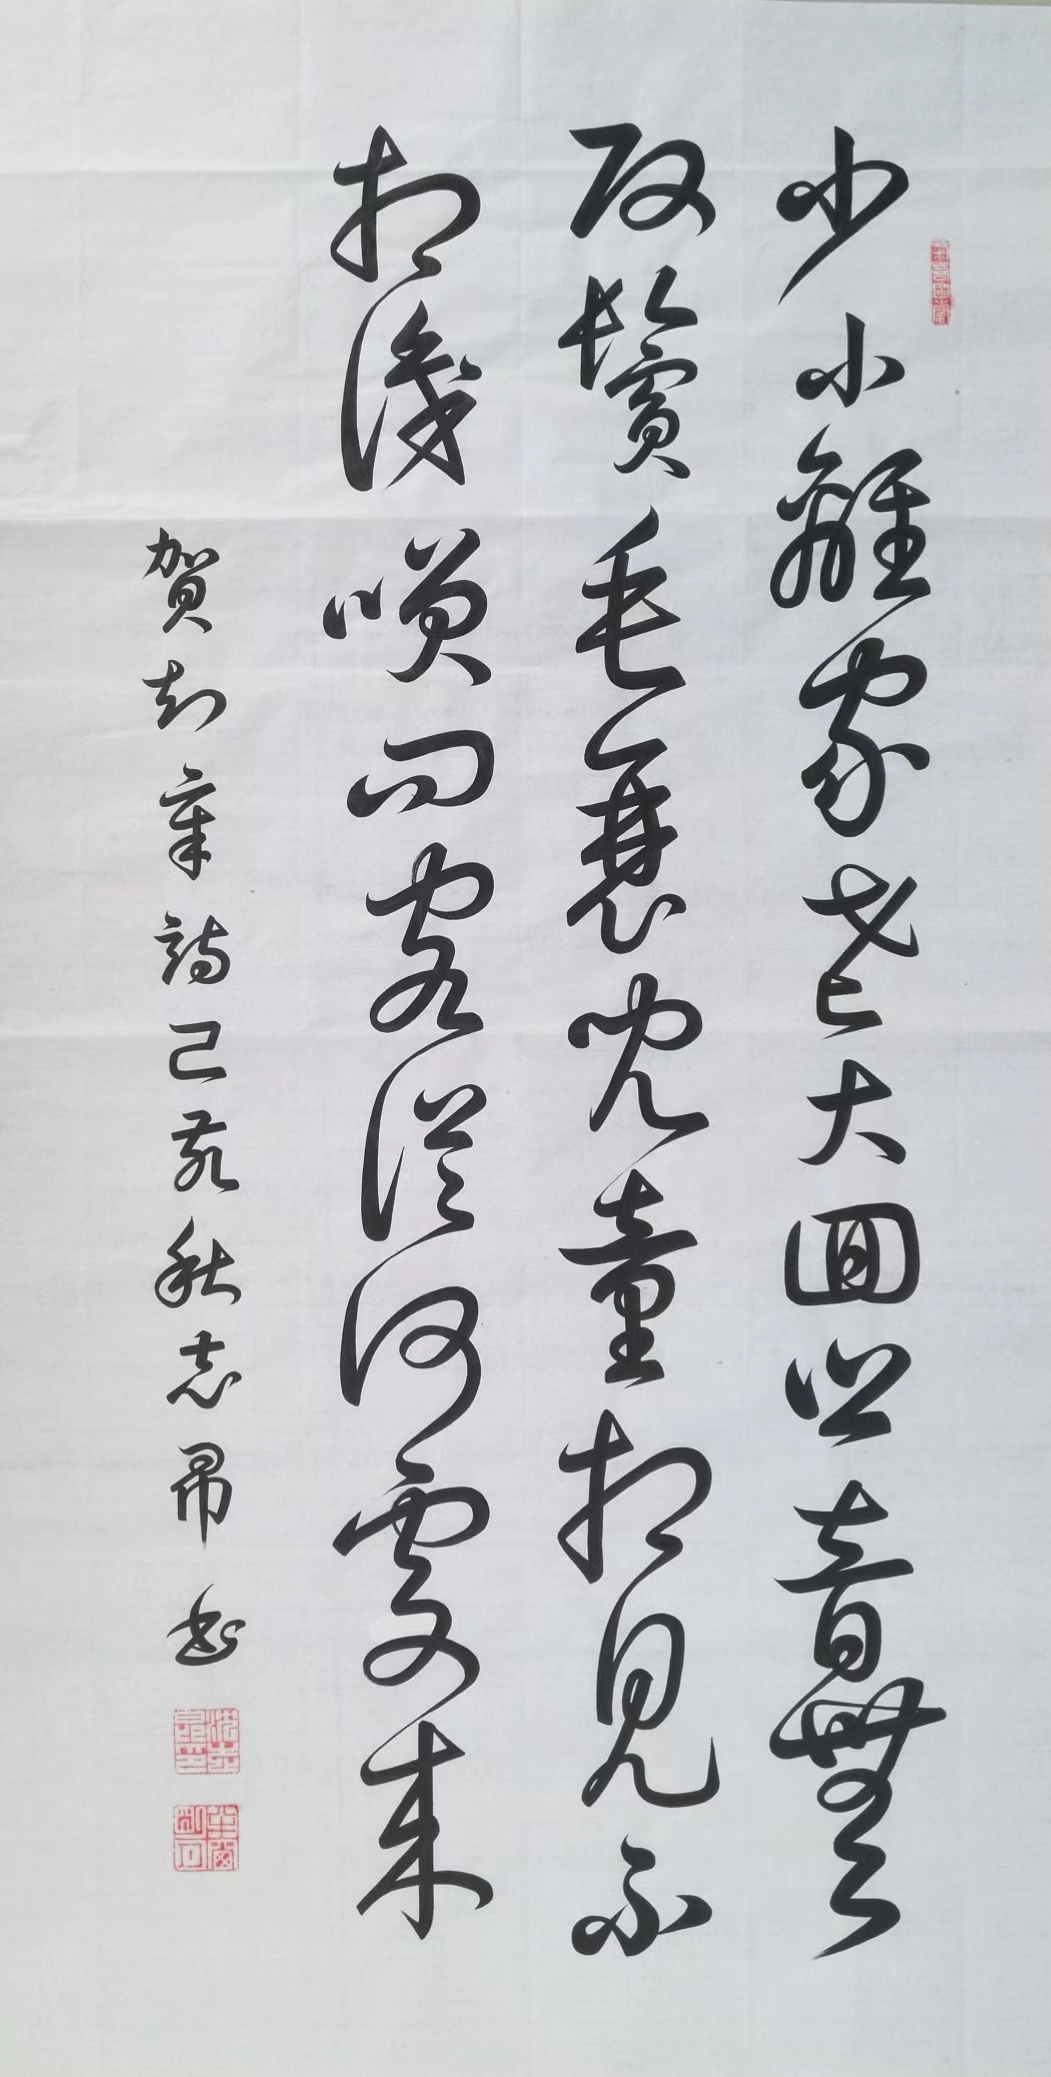 少小離家老大囬鄉音無
改鬢毛衰兒童相見不
相識咲問客從何處来
賀知章詩己亥秋志書